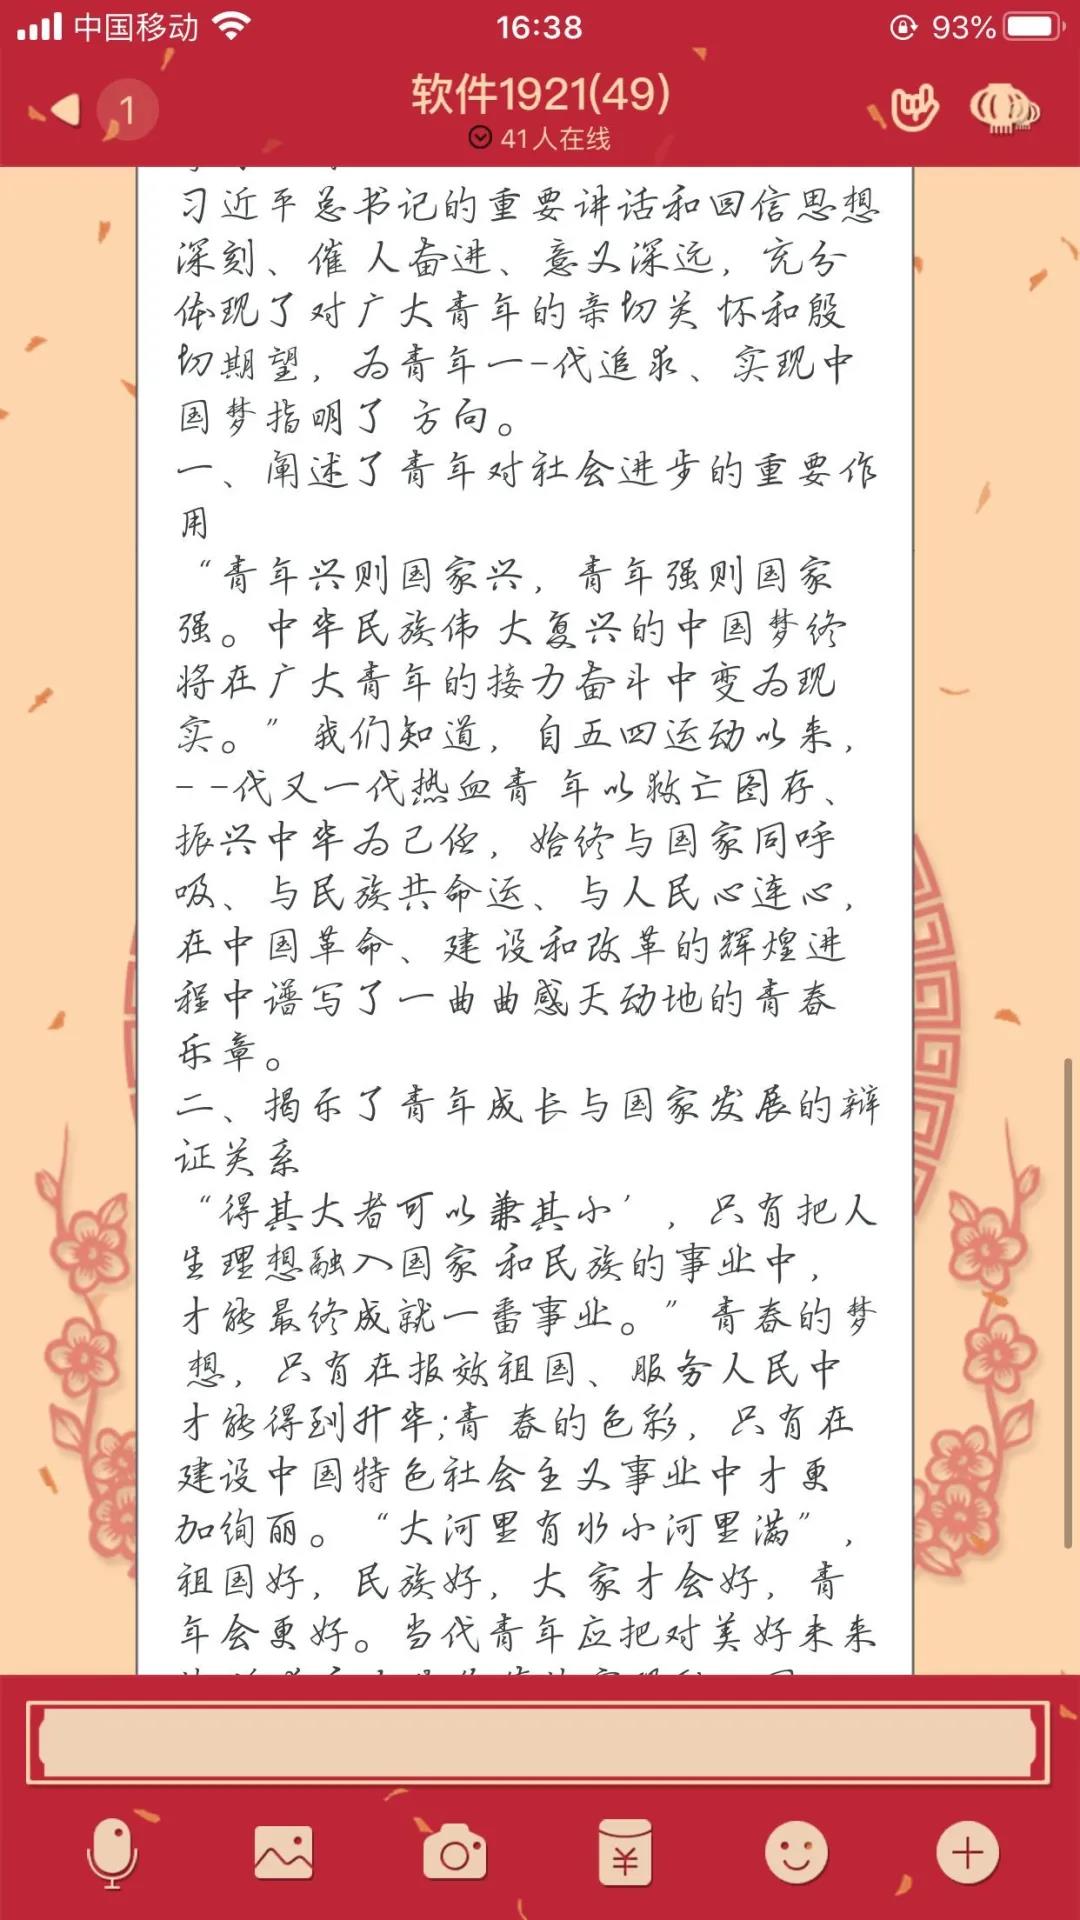 中国移动 16:38 93%
1 软件1921(49)
41人在线
习近平总书记的重要讲话和回信思想
深刻、催 人奋进、意义深远，充分
体现了对广大青年的亲切关 怀和殷
切期望，为青年一-代追求、实现中
国梦指明了 方向。
一、阐述了青年对社会进步的重要作
用
“青年兴则国家兴，青年强则国家
强。中华民族伟 大复兴的中国梦终
将在广大青年的接力奋斗中变为现
实。”我们知道，自五四运动以来，
- -代又一代热血青 年以救亡图存、
振兴中华为己任，始终与国家同呼
吸、与民族共命运、与人民心连心，
在中国革命、建 设和改革的辉煌进
程中谱写了一曲曲感天动地的青春
乐章。
二、揭示了青年成长与国家发展的辩
证关系
“得其大者可以兼其小’，只有把人
生理想融入国家 和民族的事业中，
才能最终成就一番事业。”青春的梦
想，只有在报效祖国、服务人民中
才能得到升华;青 春的色彩，只有在
建设中国特色社会主义事业中才更
加绚丽。“大河里有水小河里满”，
祖国好，民族好，大 家才会好，青
年会更好。当代青年应把对美好未来